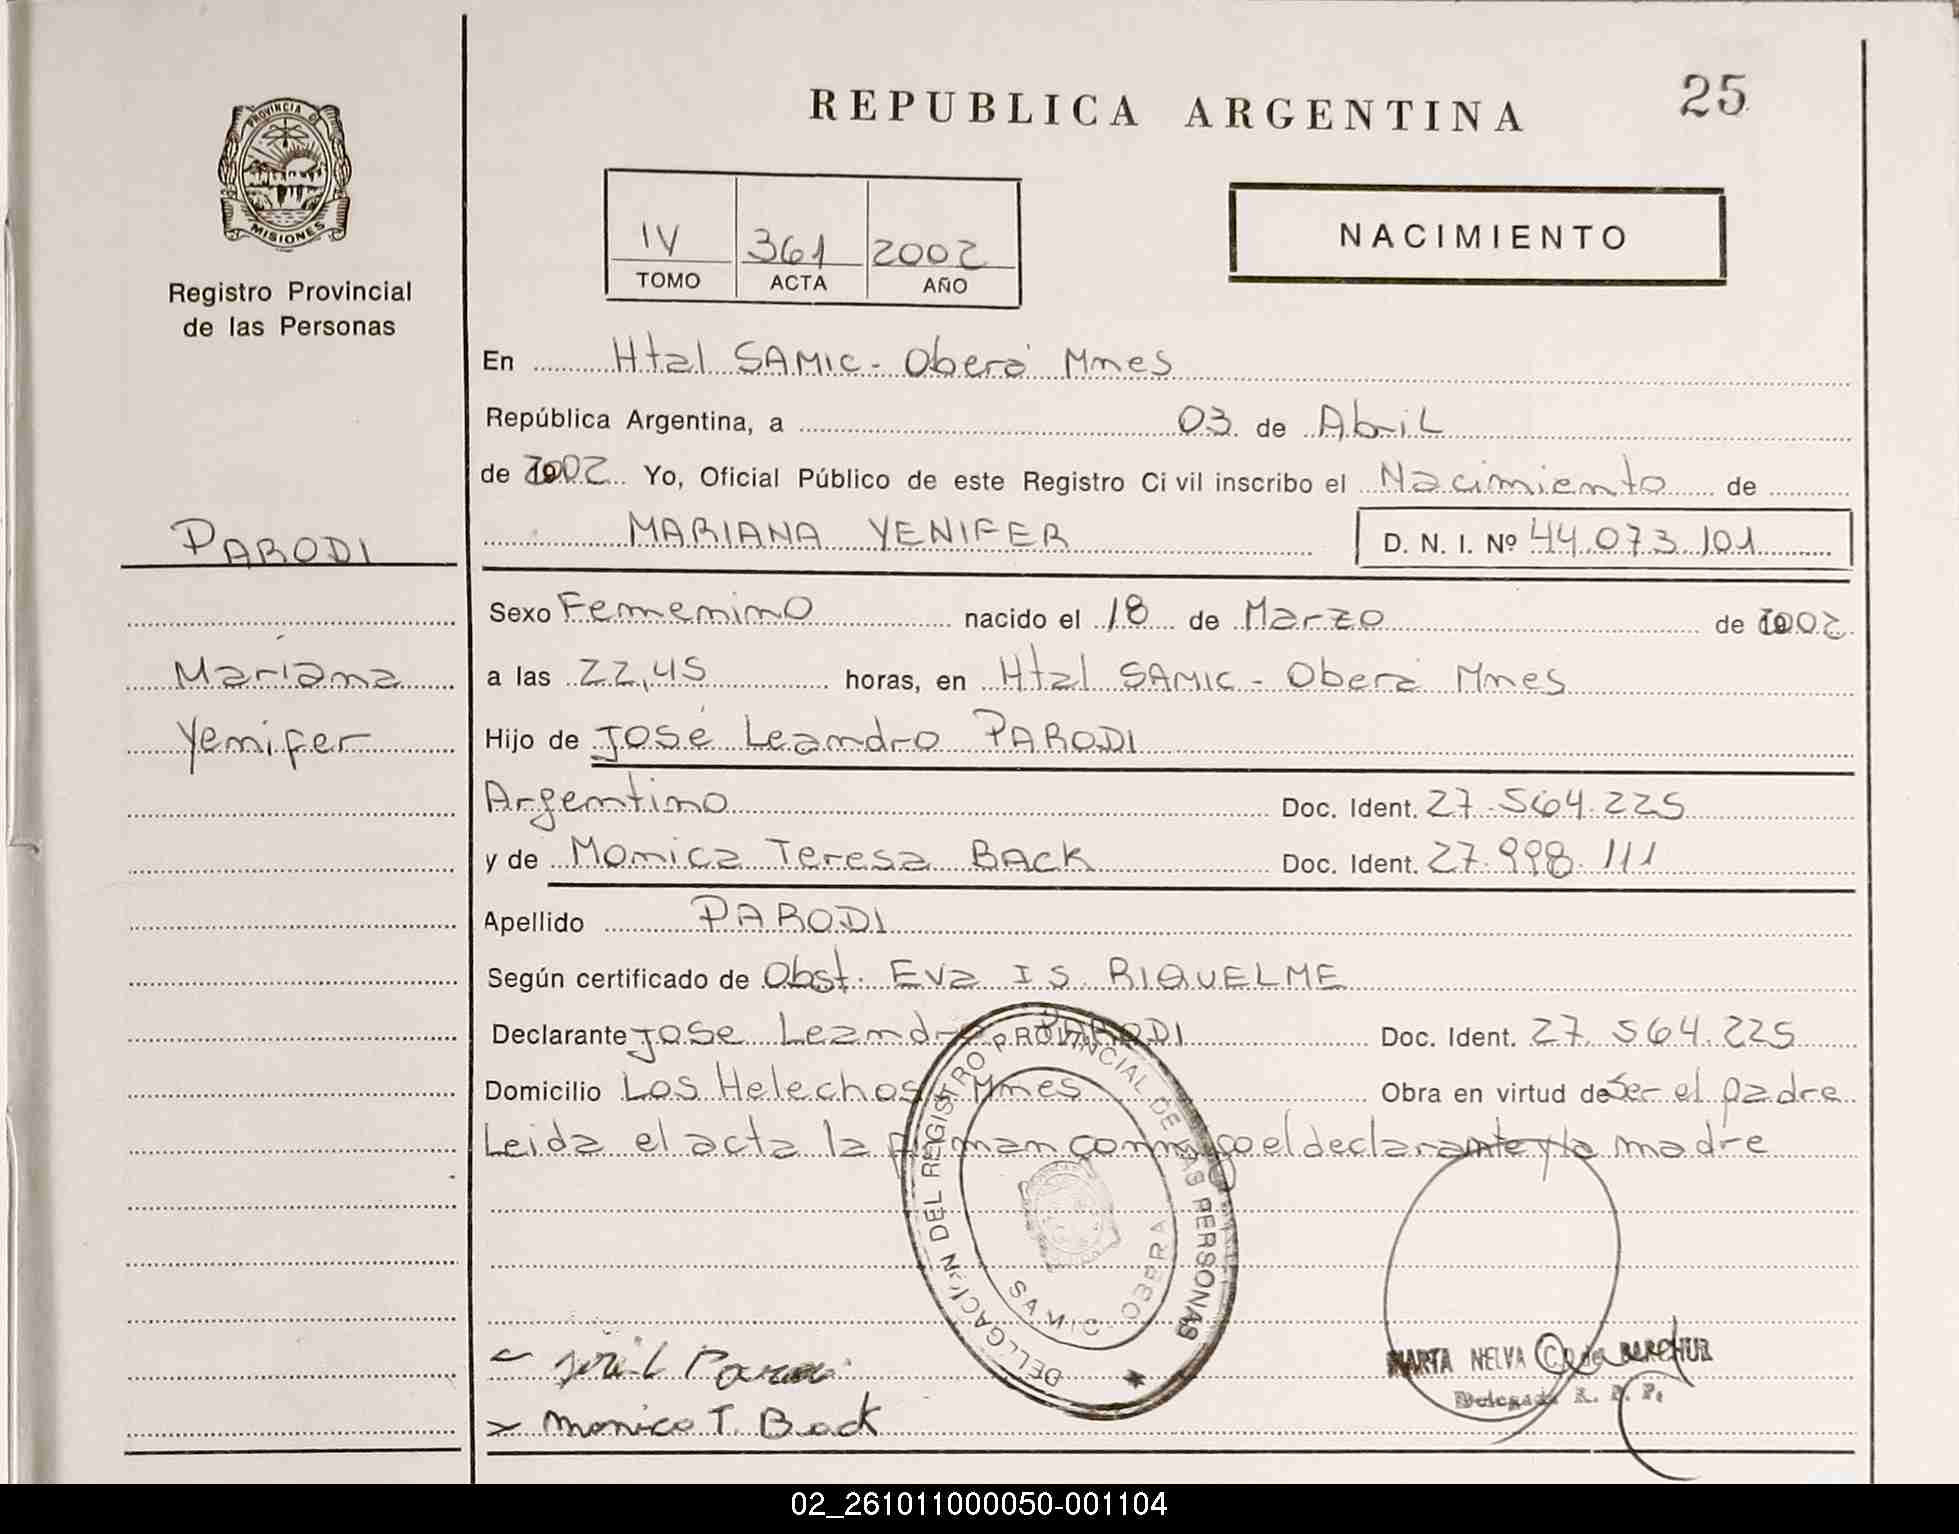 REPUBLICA ARGENTINA
25
PROVINCIA DE
MISIONES
Registro Provincial
de las Personas
IV 361 2002
TOMO ACTA AÑO
NACIMIENTO
En Htal SAMIC - Oberá Mnes
República Argentina, a 03 de Abril
de 2002 Yo, Oficial Público de este Registro Civil inscribo el Nacimiento de
PARODI
MARIANA YENIFER D. N. I. Nº 44.073.101
Sexo Femenino nacido el 18 de Marzo de 2002
Mariana
a las 22,45 horas, en Htal SAMIC - Oberá Mnes
Yenifer
Hijo de José Leandro PARODI
Argentino Doc. Ident. 27.564.225
y de Monica Teresa BACK Doc. Ident. 27.998.111
Apellido PARODI
Según certificado de Obst. Eva I S. RIQUELME
Declarante Jose Leandro PARODI Doc. Ident. 27.564.225
Domicilio Los Helechos Mnes Obra en virtud de Ser el padre
Leida el acta la firman conmigo el declarante y la madre
DELEGACION DEL REGISTRO PROVINCIAL DE LAS PERSONAS
SAMIC OBERA
Parodi
Monica T. Back
MARTA NELVA C. de
Delegada R. P. P.
02_261011000050-001104